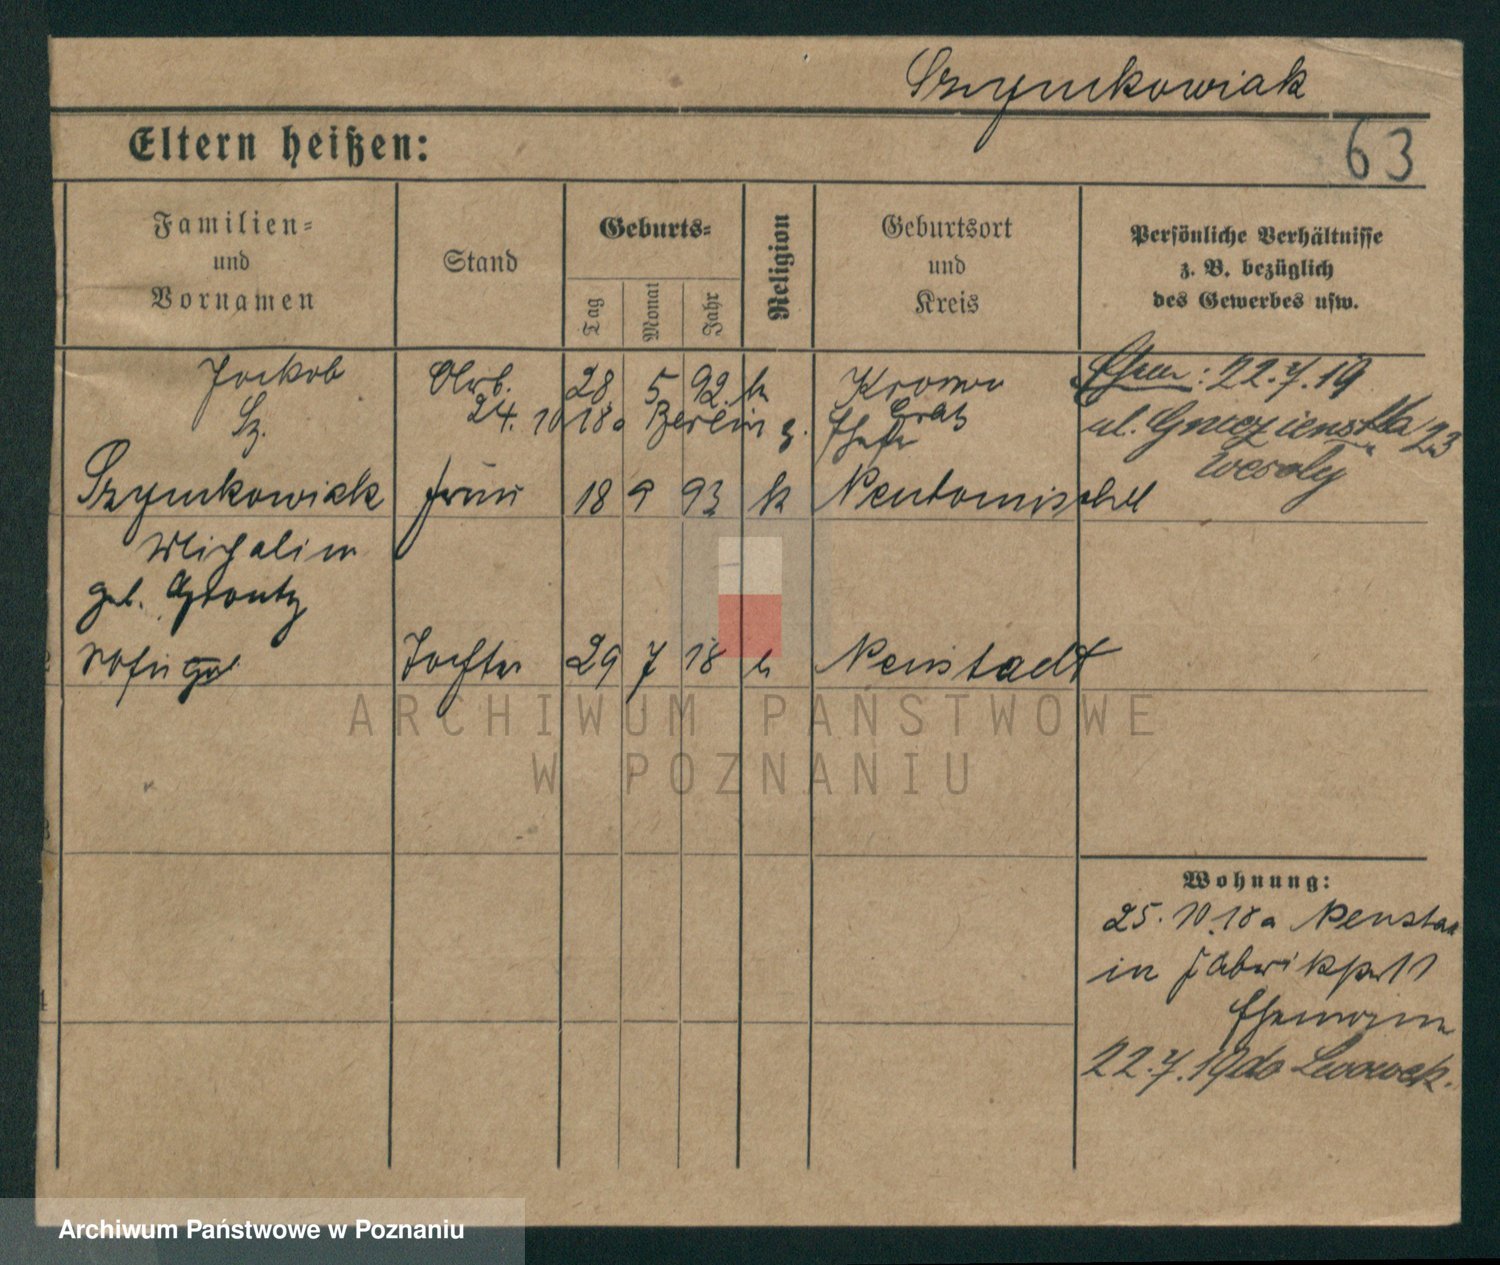 Szymkowiak
Eltern heißen:
63
Familien-
und
Vornamen
Stand
Geburts-
Tag
Monat
Jahr
Religion
Geburtsort
und
Kreis
Persönliche Verhältnisse
z. B. bezüglich
des Gewerbes usw.
Jackob Arb. 28. 5 92 k
Grätz
: 22.7.19
Sz. 24. 10 18 a Berlin z.
ul. Gnieznienska 23
Wesoły
Szymkowiak Frau 18 9 93 k Neutomischel
Michalina
geb.
Tochter 29 7 18 k Neustadt
ARCHIWUM PAŃSTWOWE
W POZNANIU
Wohnung:
25. 10. 18 a Neustadt
in
Ehemann
22.7.19 do Lwowek.
Archiwum Państwowe w Poznaniu